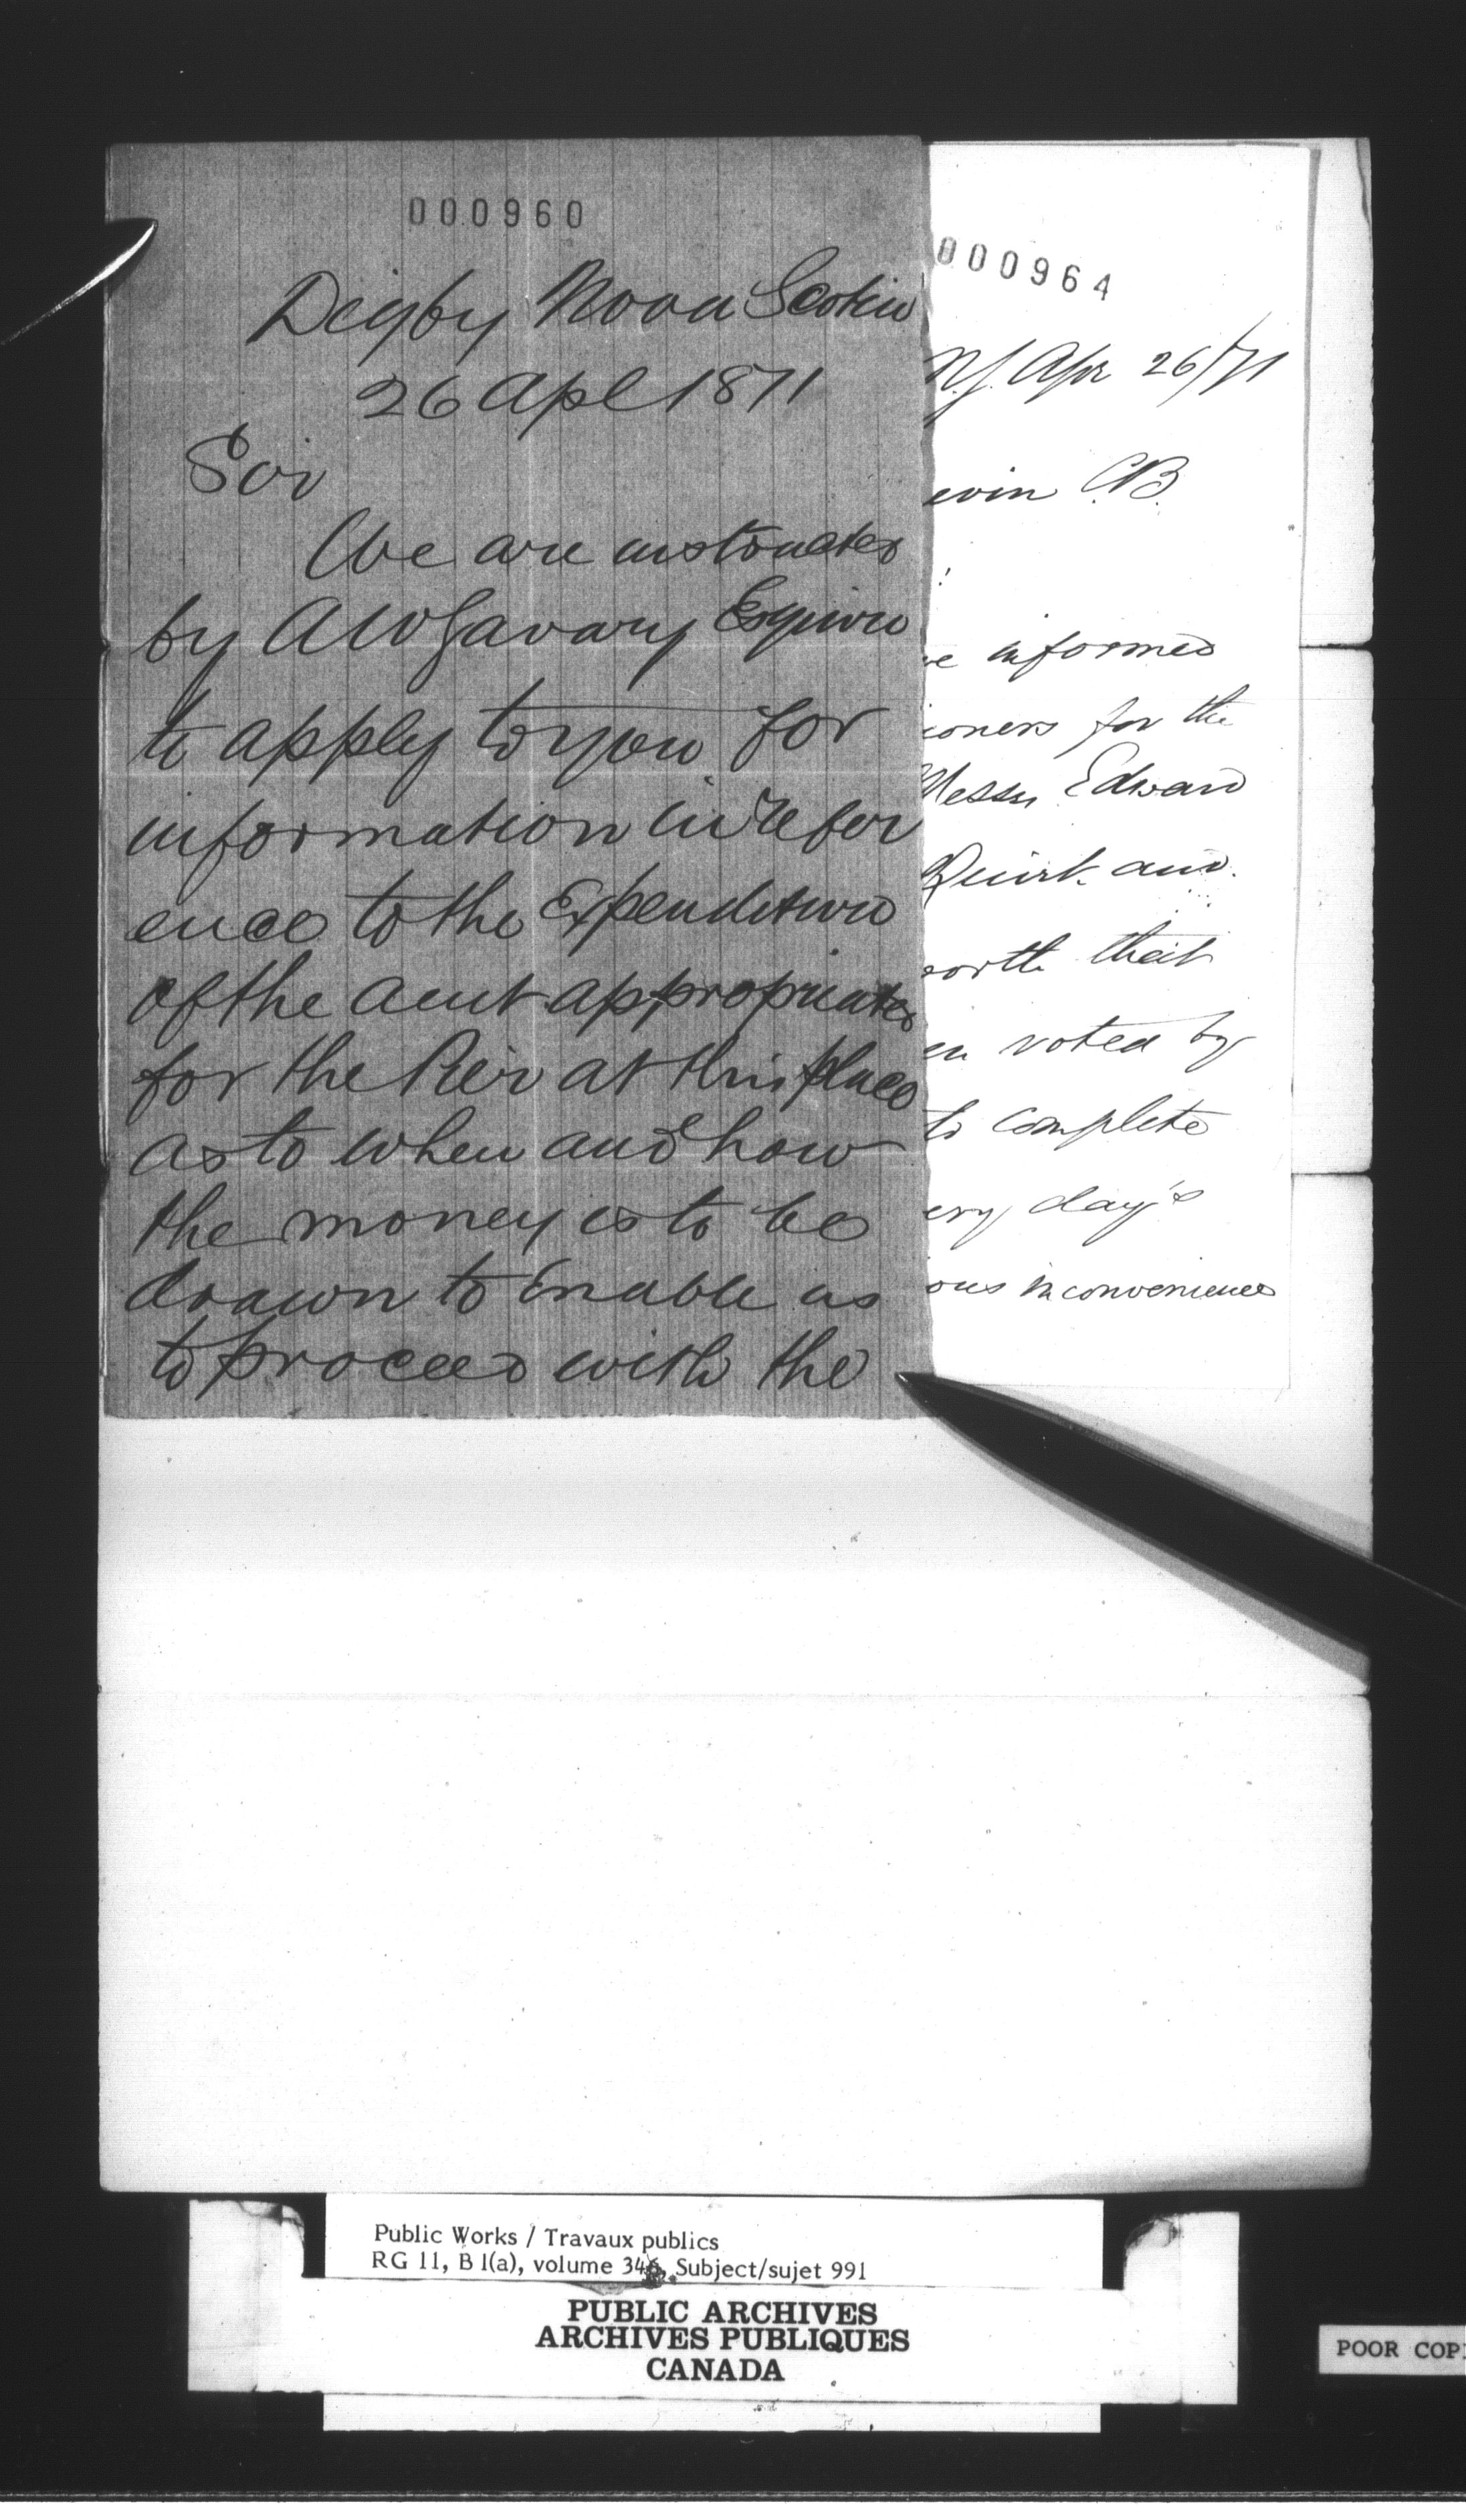 000960
Digby Nova Scotia
26 Apl 1871
Sir
We are instructed
by A W Savary Esquire
to apply to you for
information in refer
ence to the Expenditure
of the amt appropriated
for the Pier at this place
as to when and how
the money is to be
drawn to Enable us
to proceed with the
000964
Apr 26/71
C.B.
informed
for the
Messrs Edward
Quirk and
that
voted by
to complete
day's
inconvenience
Public Works / Travaux publics
RG 11, B 1(a), volume 346, Subject/sujet 991
PUBLIC ARCHIVES
ARCHIVES PUBLIQUES
CANADA
POOR COP